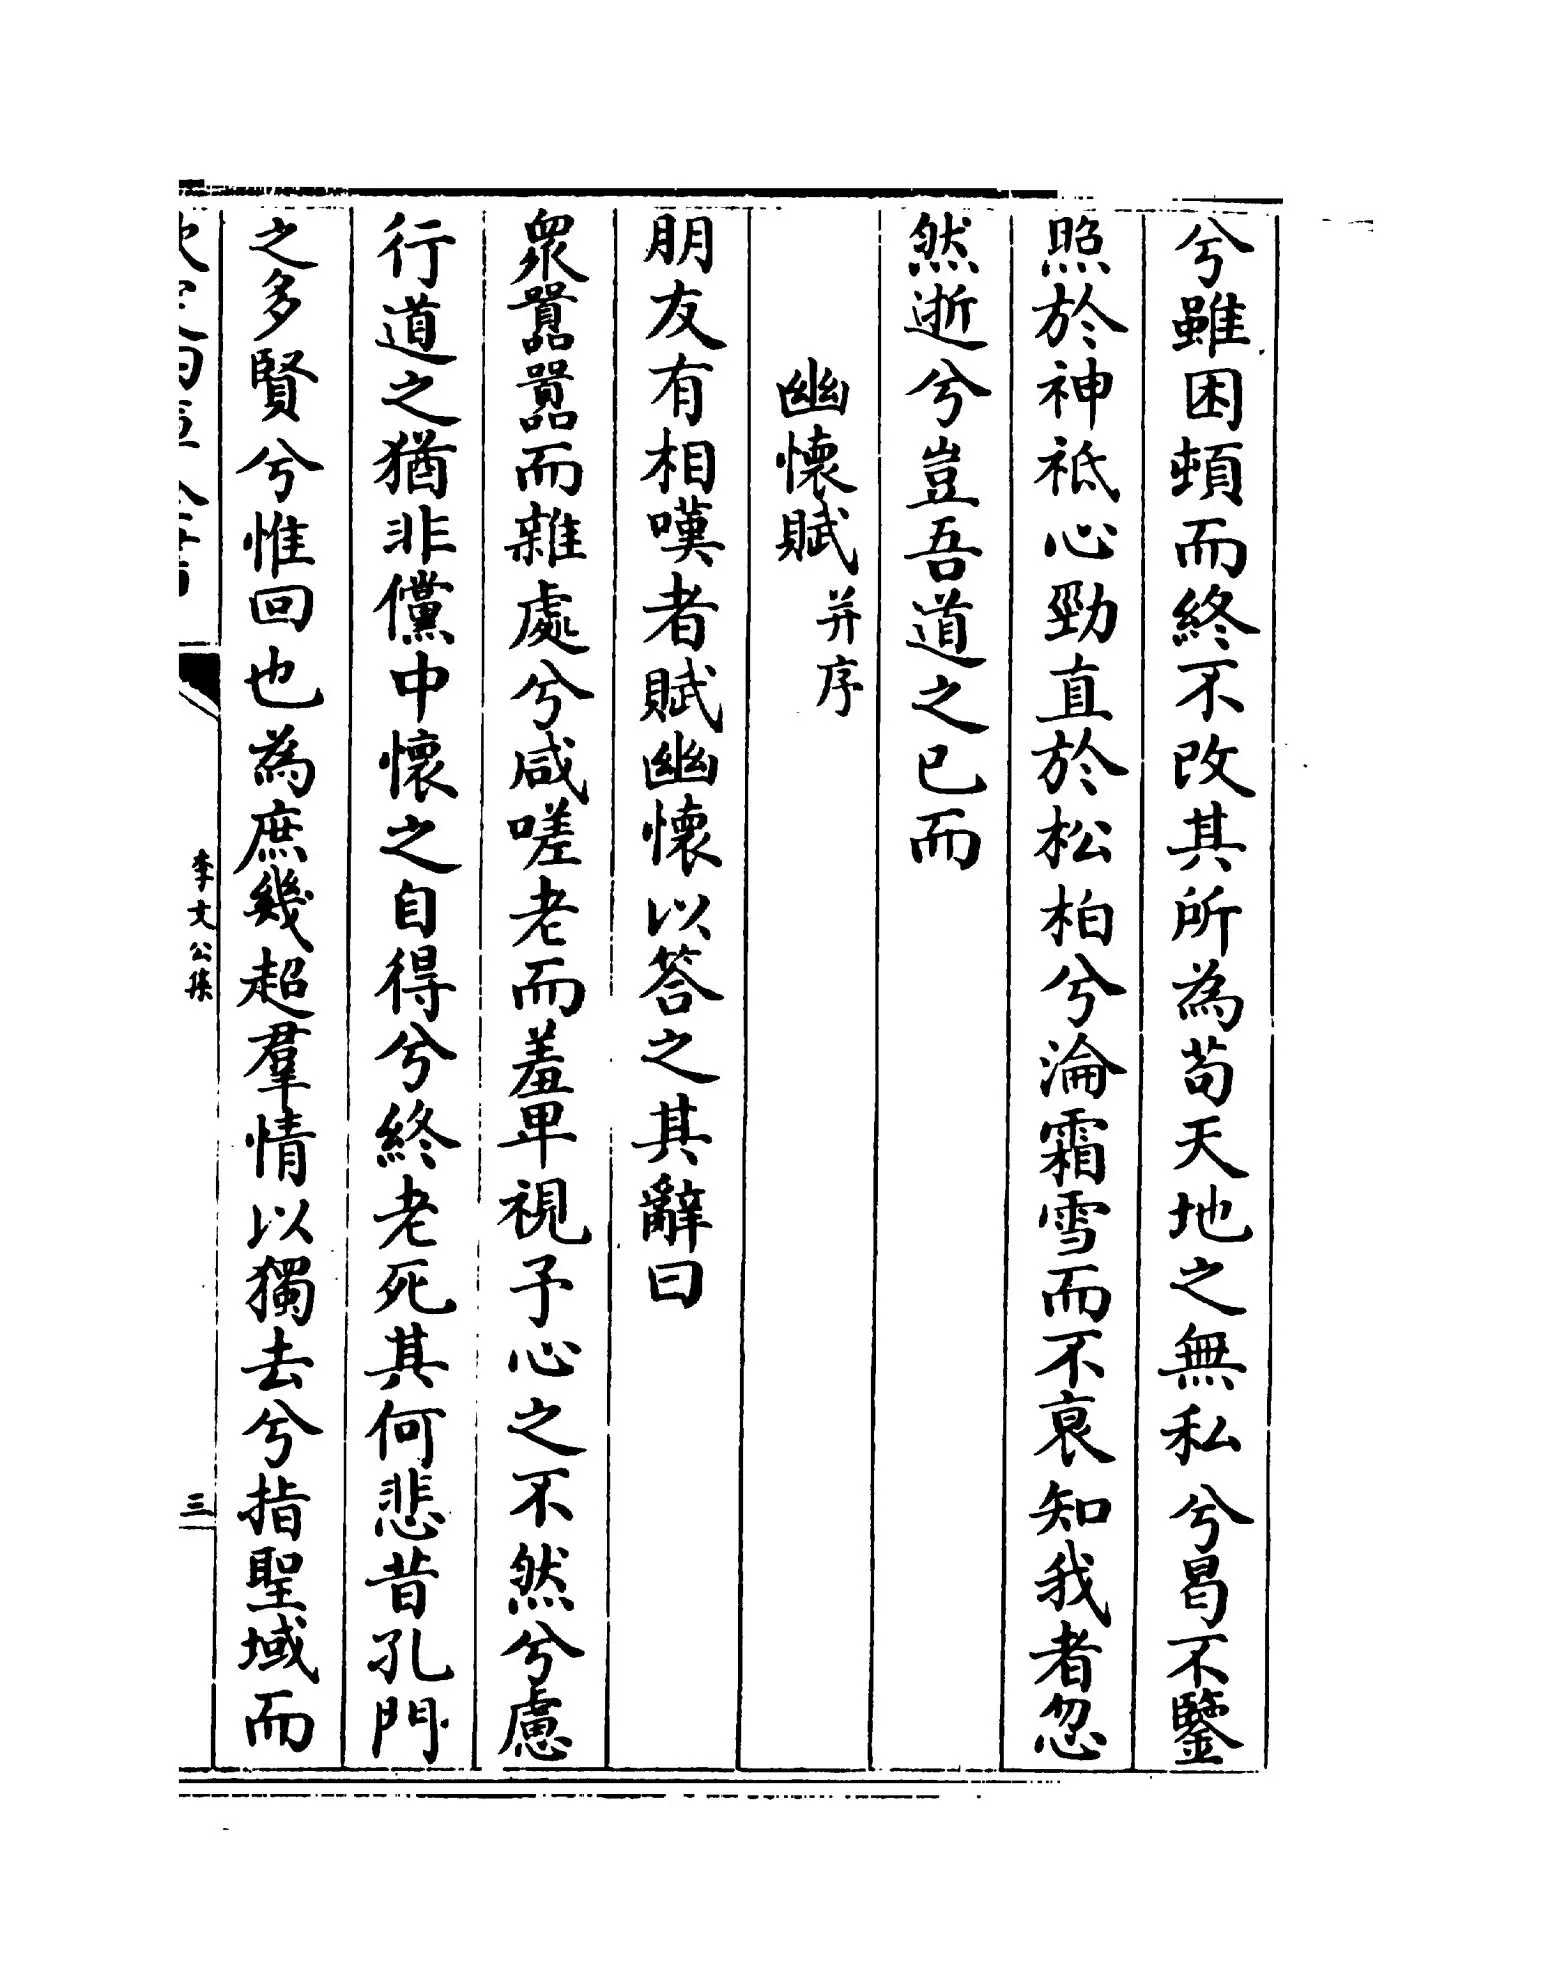 兮雖困頓而終不改其所為茍天地之無私兮曷不鑒
照於神祗心勁直於松柏兮淪霜雪而不哀知我者忽
然逝兮豈吾道之已而
幽懷賦并序
朋友有相嘆者賦幽懷以答之其辭曰
衆囂囂而雜處兮咸嗟老而羞卑視予心之不然兮慮
行道之猶非儻中懷之自得兮終老死其何悲昔孔門
之多賢兮惟回也為庶幾超羣情以獨去兮指聖域而
李文公集
三